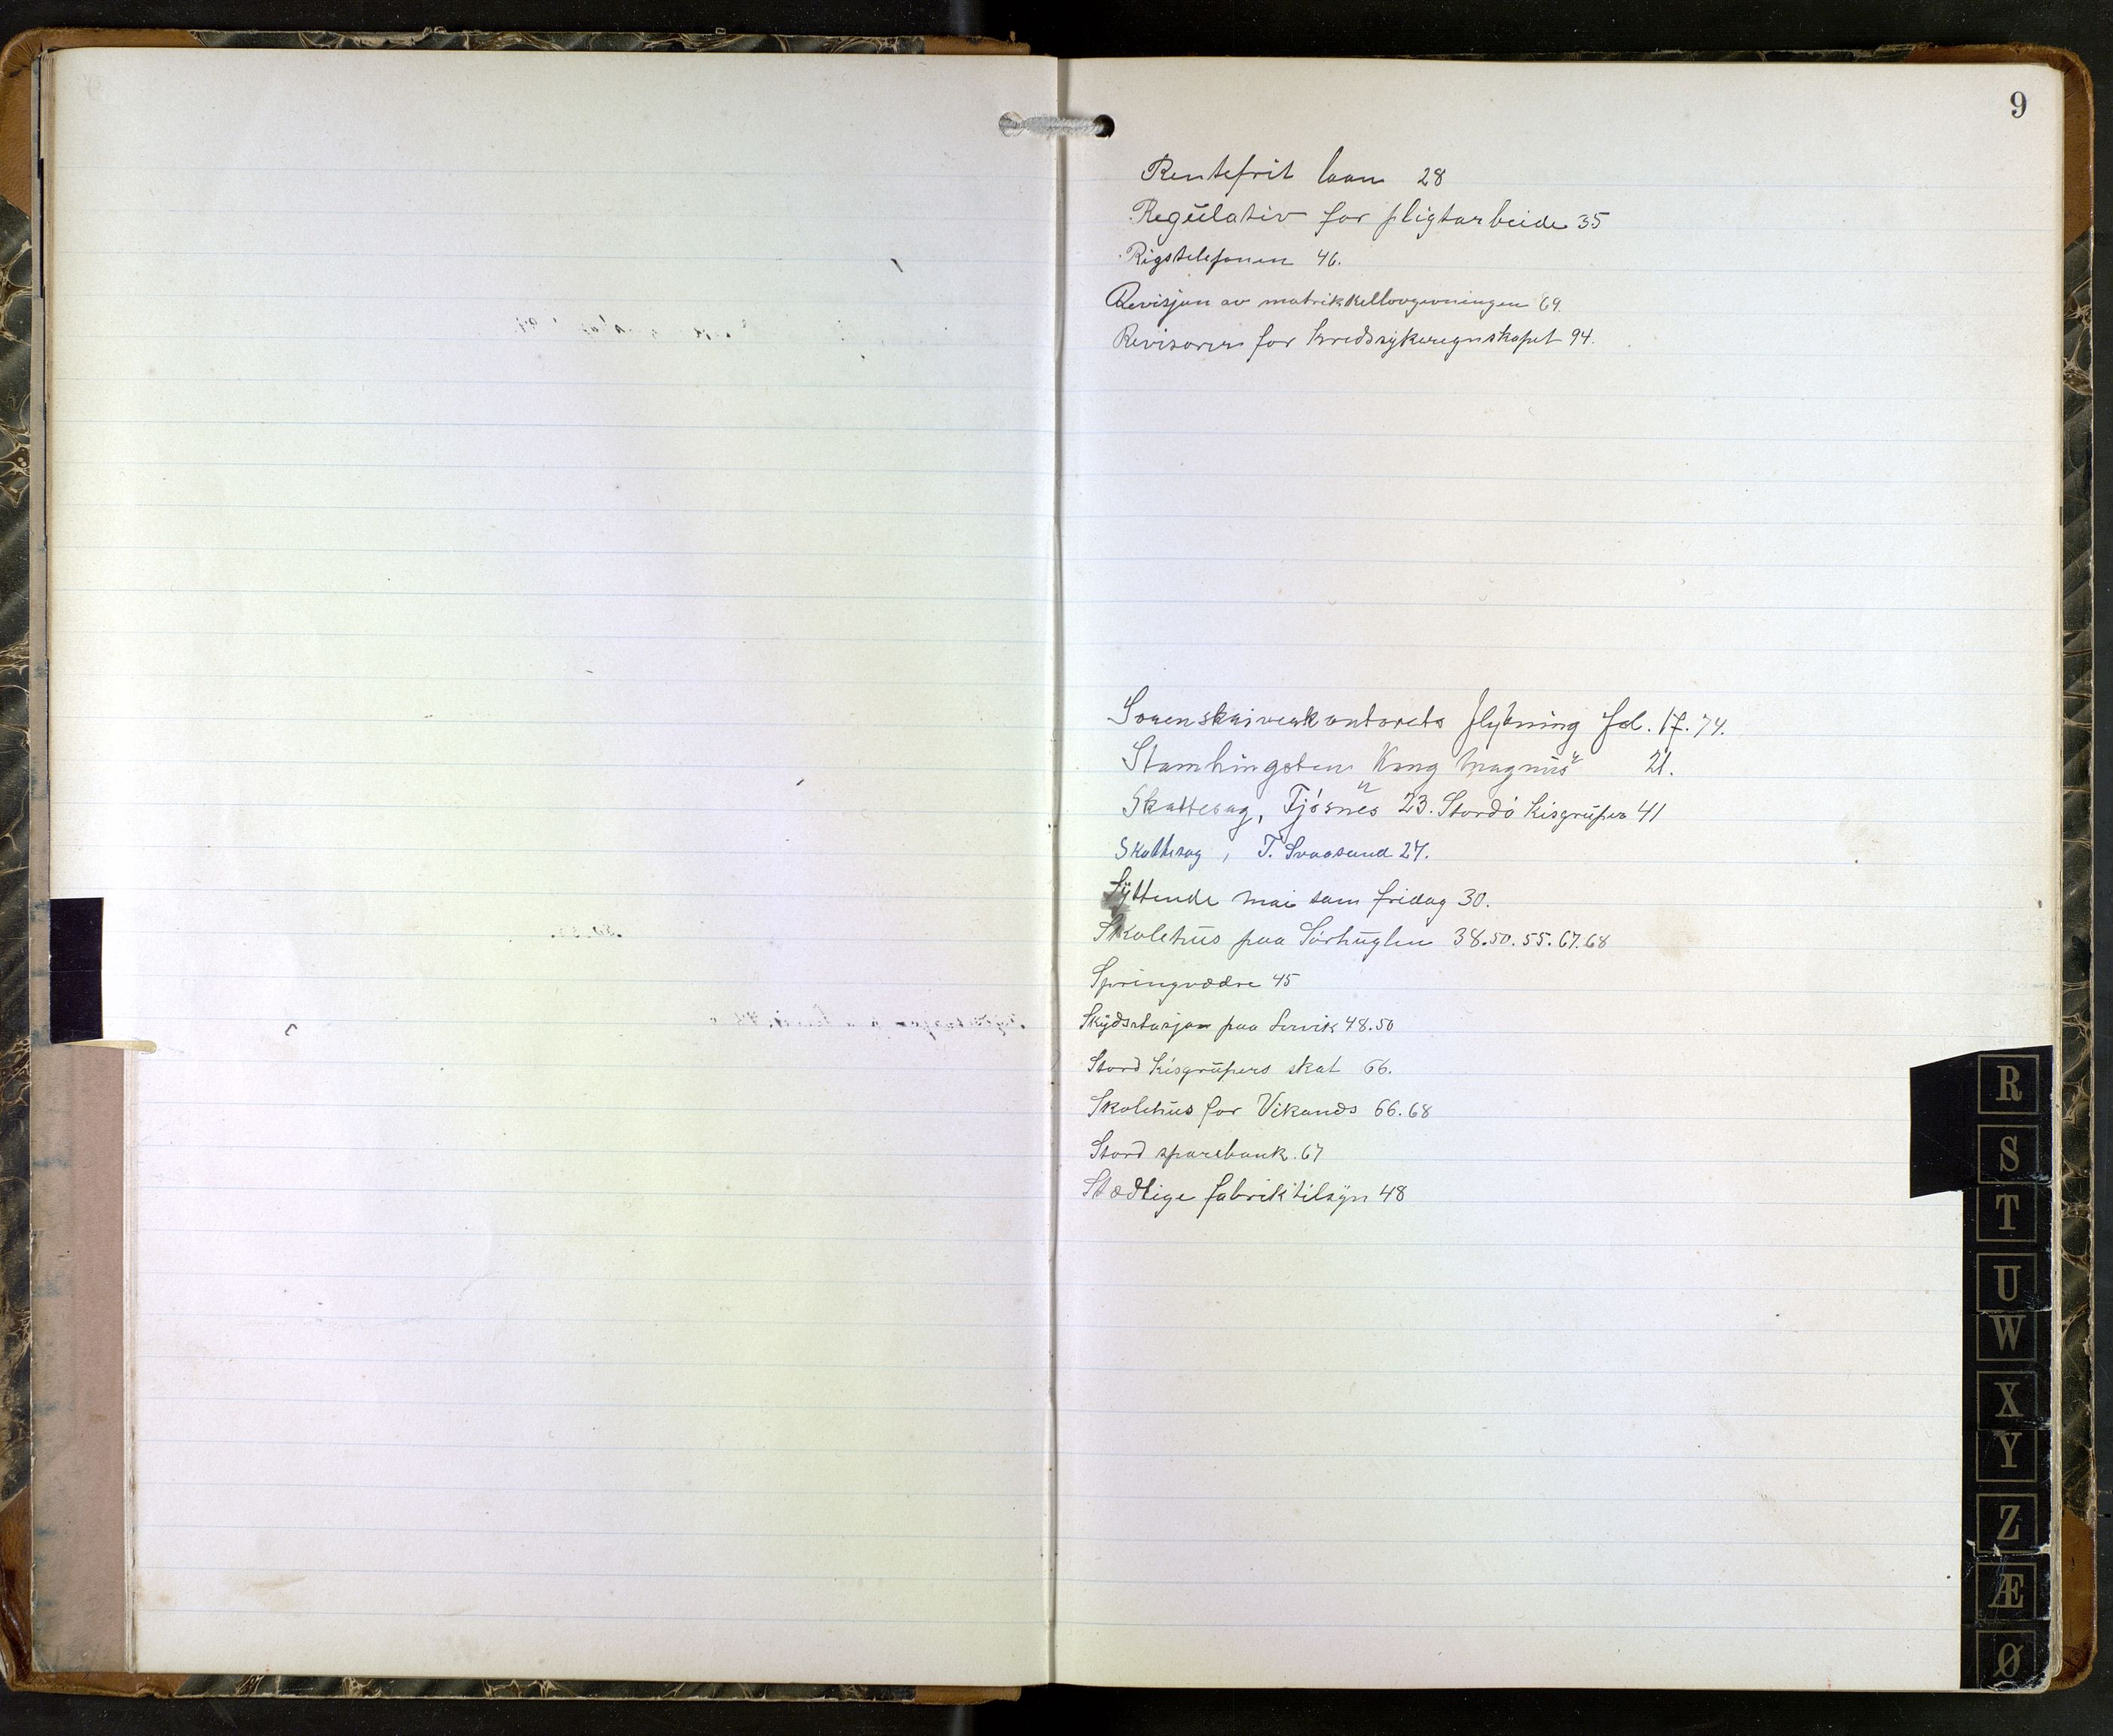 9
Rentefrit laan 28
Regŭlativ for pligtarbeide 35
Rigstelefonen 46.
Revisjon av matrikkellovgivningen 69.
Revisorer for kredssykeregnskapet 94.
Sorenskriverkontorets flytning fol. 17. 74.
Stamhingsten "Kong Magnŭs" 21.
Skattesag, Tjösnes 23. Stordö Kisgrŭper 41
Skattesag, T. Svaasand 27.
Syttende mai som fridag 30.
Skolehŭs paa Sörhŭglen 38.50.55.67.68
Springvædre 45
Skydsstasjon paa Lervik 48.50
Stord Kisgrŭpers skat 66.
Skolehŭs for Vikanes 66.68
Stord sparebank. 67
Stedlige fabriktilsyn 48
R
S
T
U
W
X
Y
Z
Æ
Ø